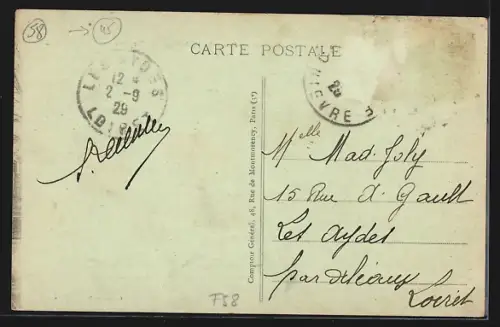 58
45
CARTE POSTALE
LES AYDES
12
2 - 9
29
LOIRET
29
NIÈVRE
Comptoir Général, 48, Rue de Montmorency, Paris (3e)
Melle Mad. Joly
15 Rue d. Gault
Les Aydes
par Orléans
Loiret
F58